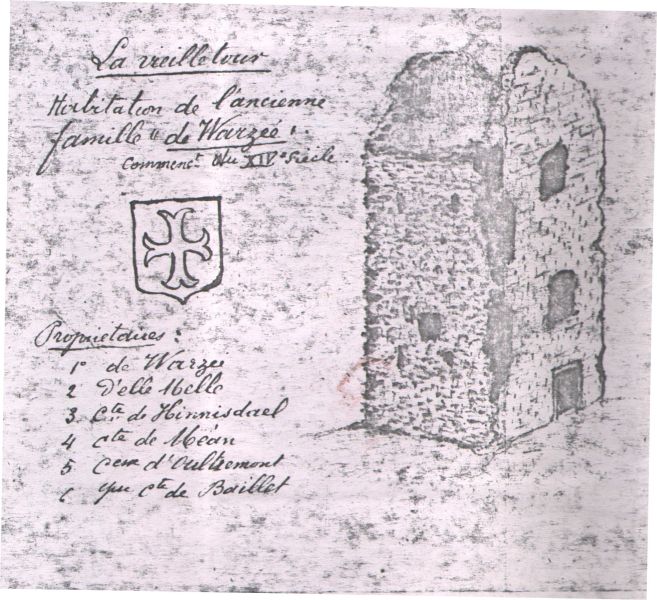 La vieille tour
Habitation de l'ancienne
famille "de Warzée".
Commenct du XIVe siècle.
Propriétaires :
1° de Warzée
2 D'elle Melle
3. Cte de Hinnisdael
4 Cte de Méan
5 d'Oultremont
6 Cte de Baillet